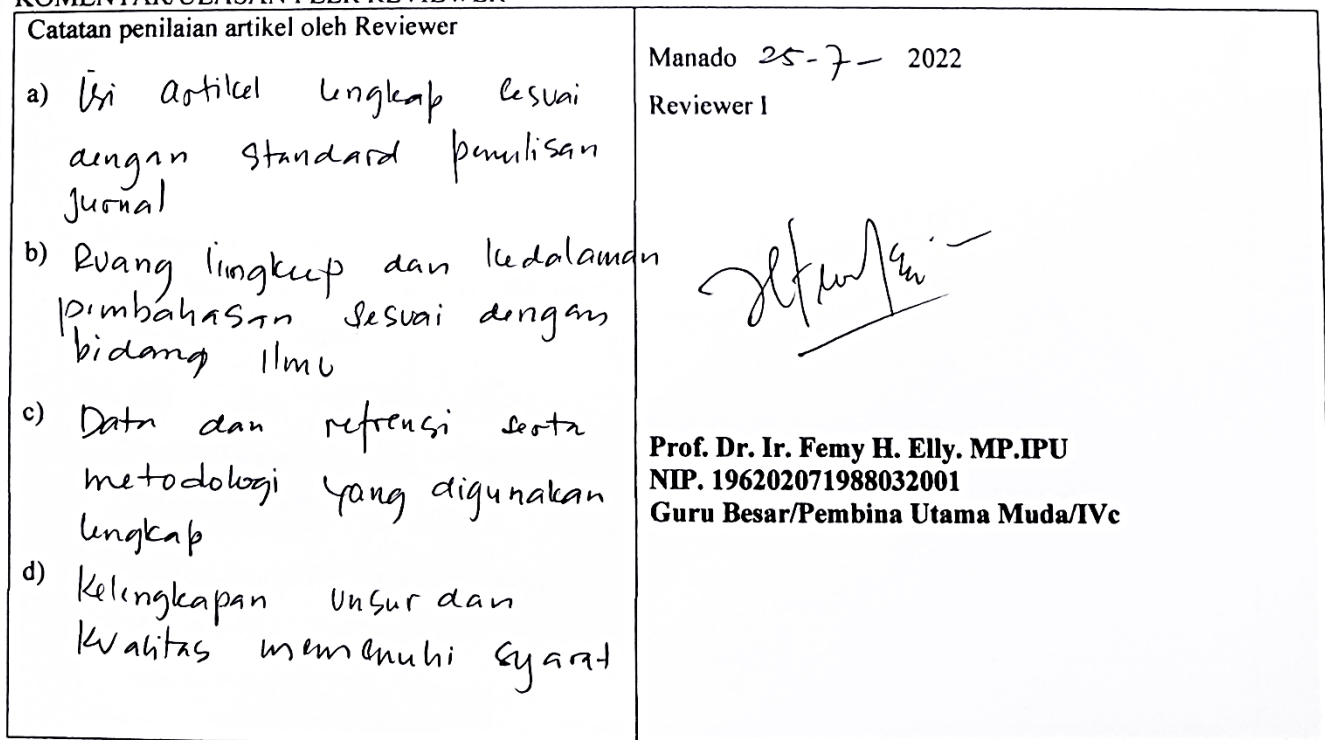 KOMENTAR/ULASAN PEER REVIEWER
Catatan penilaian artikel oleh Reviewer
a) Isi artikel lengkap sesuai
dengan standard penulisan
Jurnal
b) Ruang lingkup dan kedalaman
pembahasan sesuai dengan
bidang Ilmu
c) Data dan refrensi serta
metodologi yang digunakan
lengkap
d) Kelengkapan unsur dan
kualitas memenuhi syarat
Manado 25-7- 2022
Reviewer I
Prof. Dr. Ir. Femy H. Elly. MP.IPU
NIP. 196202071988032001
Guru Besar/Pembina Utama Muda/IVc